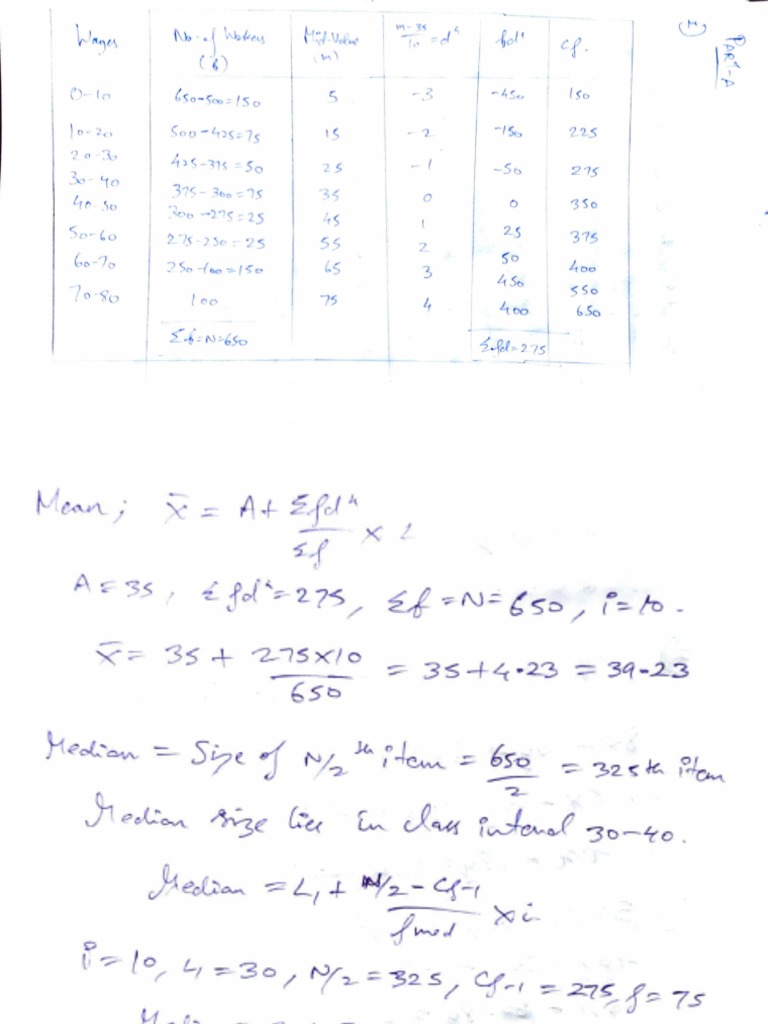 PART-A
1)
Wages No. of Workers (f) Mid-Value (m) m-35/10 = d' fd' cf.
0-10 650-500=150 5 -3 -450 150
10-20 500-425=75 15 -2 -150 225
20-30 425-375=50 25 -1 -50 275
30-40 375-300=75 35 0 0 350
40-50 300-275=25 45 1 25 375
50-60 275-250=25 55 2 50 400
60-70 250-100=150 65 3 450 550
70-80 100 75 4 400 650
Σf=N=650 Σfd=275
Mean; x̄ = A+ Σfd'/Σf × i
A=35, Σfd'=275, Σf=N=650, i=10.
x̄ = 35 + 275×10/650 = 35+4.23 = 39.23
Median = Size of N/2 th item = 650/2 = 325th item
Median size lies in class interval 30-40.
Median = L1 + N/2 - cf-1/fmed × i
i=10, L1=30, N/2=325, Cf-1=275, f=75